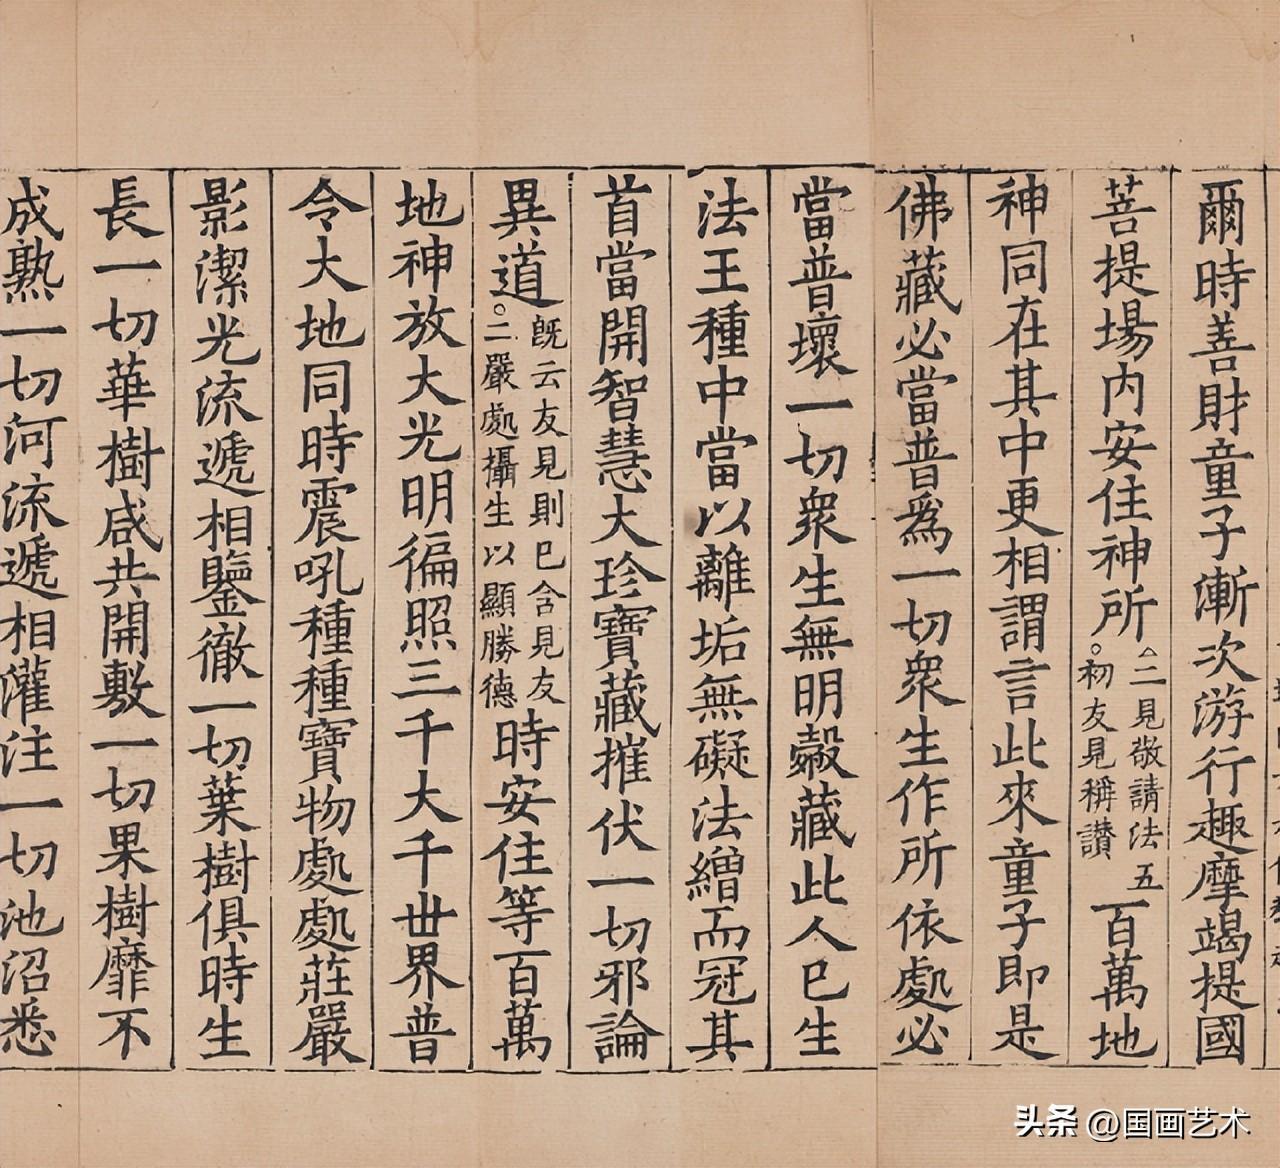 爾時善財童子漸次游行趣摩竭提國
菩提場内安住神所二見敬請法五初友見稱讃百萬地
神同在其中更相謂言此來童子即是
佛藏必當普爲一切衆生作所依處必
當普壞一切衆生無明㲉藏此人已生
法王種中當以離垢無礙法繒而冠其
首當開智慧大珍寶藏摧伏一切邪論
異道既云友見則已含見友二嚴處攝生以顯勝德時安住等百萬
地神放大光明徧照三千大千世界普
令大地同時震吼種種寶物處處莊嚴
影潔光流遞相鑒徹一切葉樹俱時生
長一切華樹咸共開敷一切果樹靡不
成熟一切河流遞相灌注一切池沼悉
头条 @国画艺术